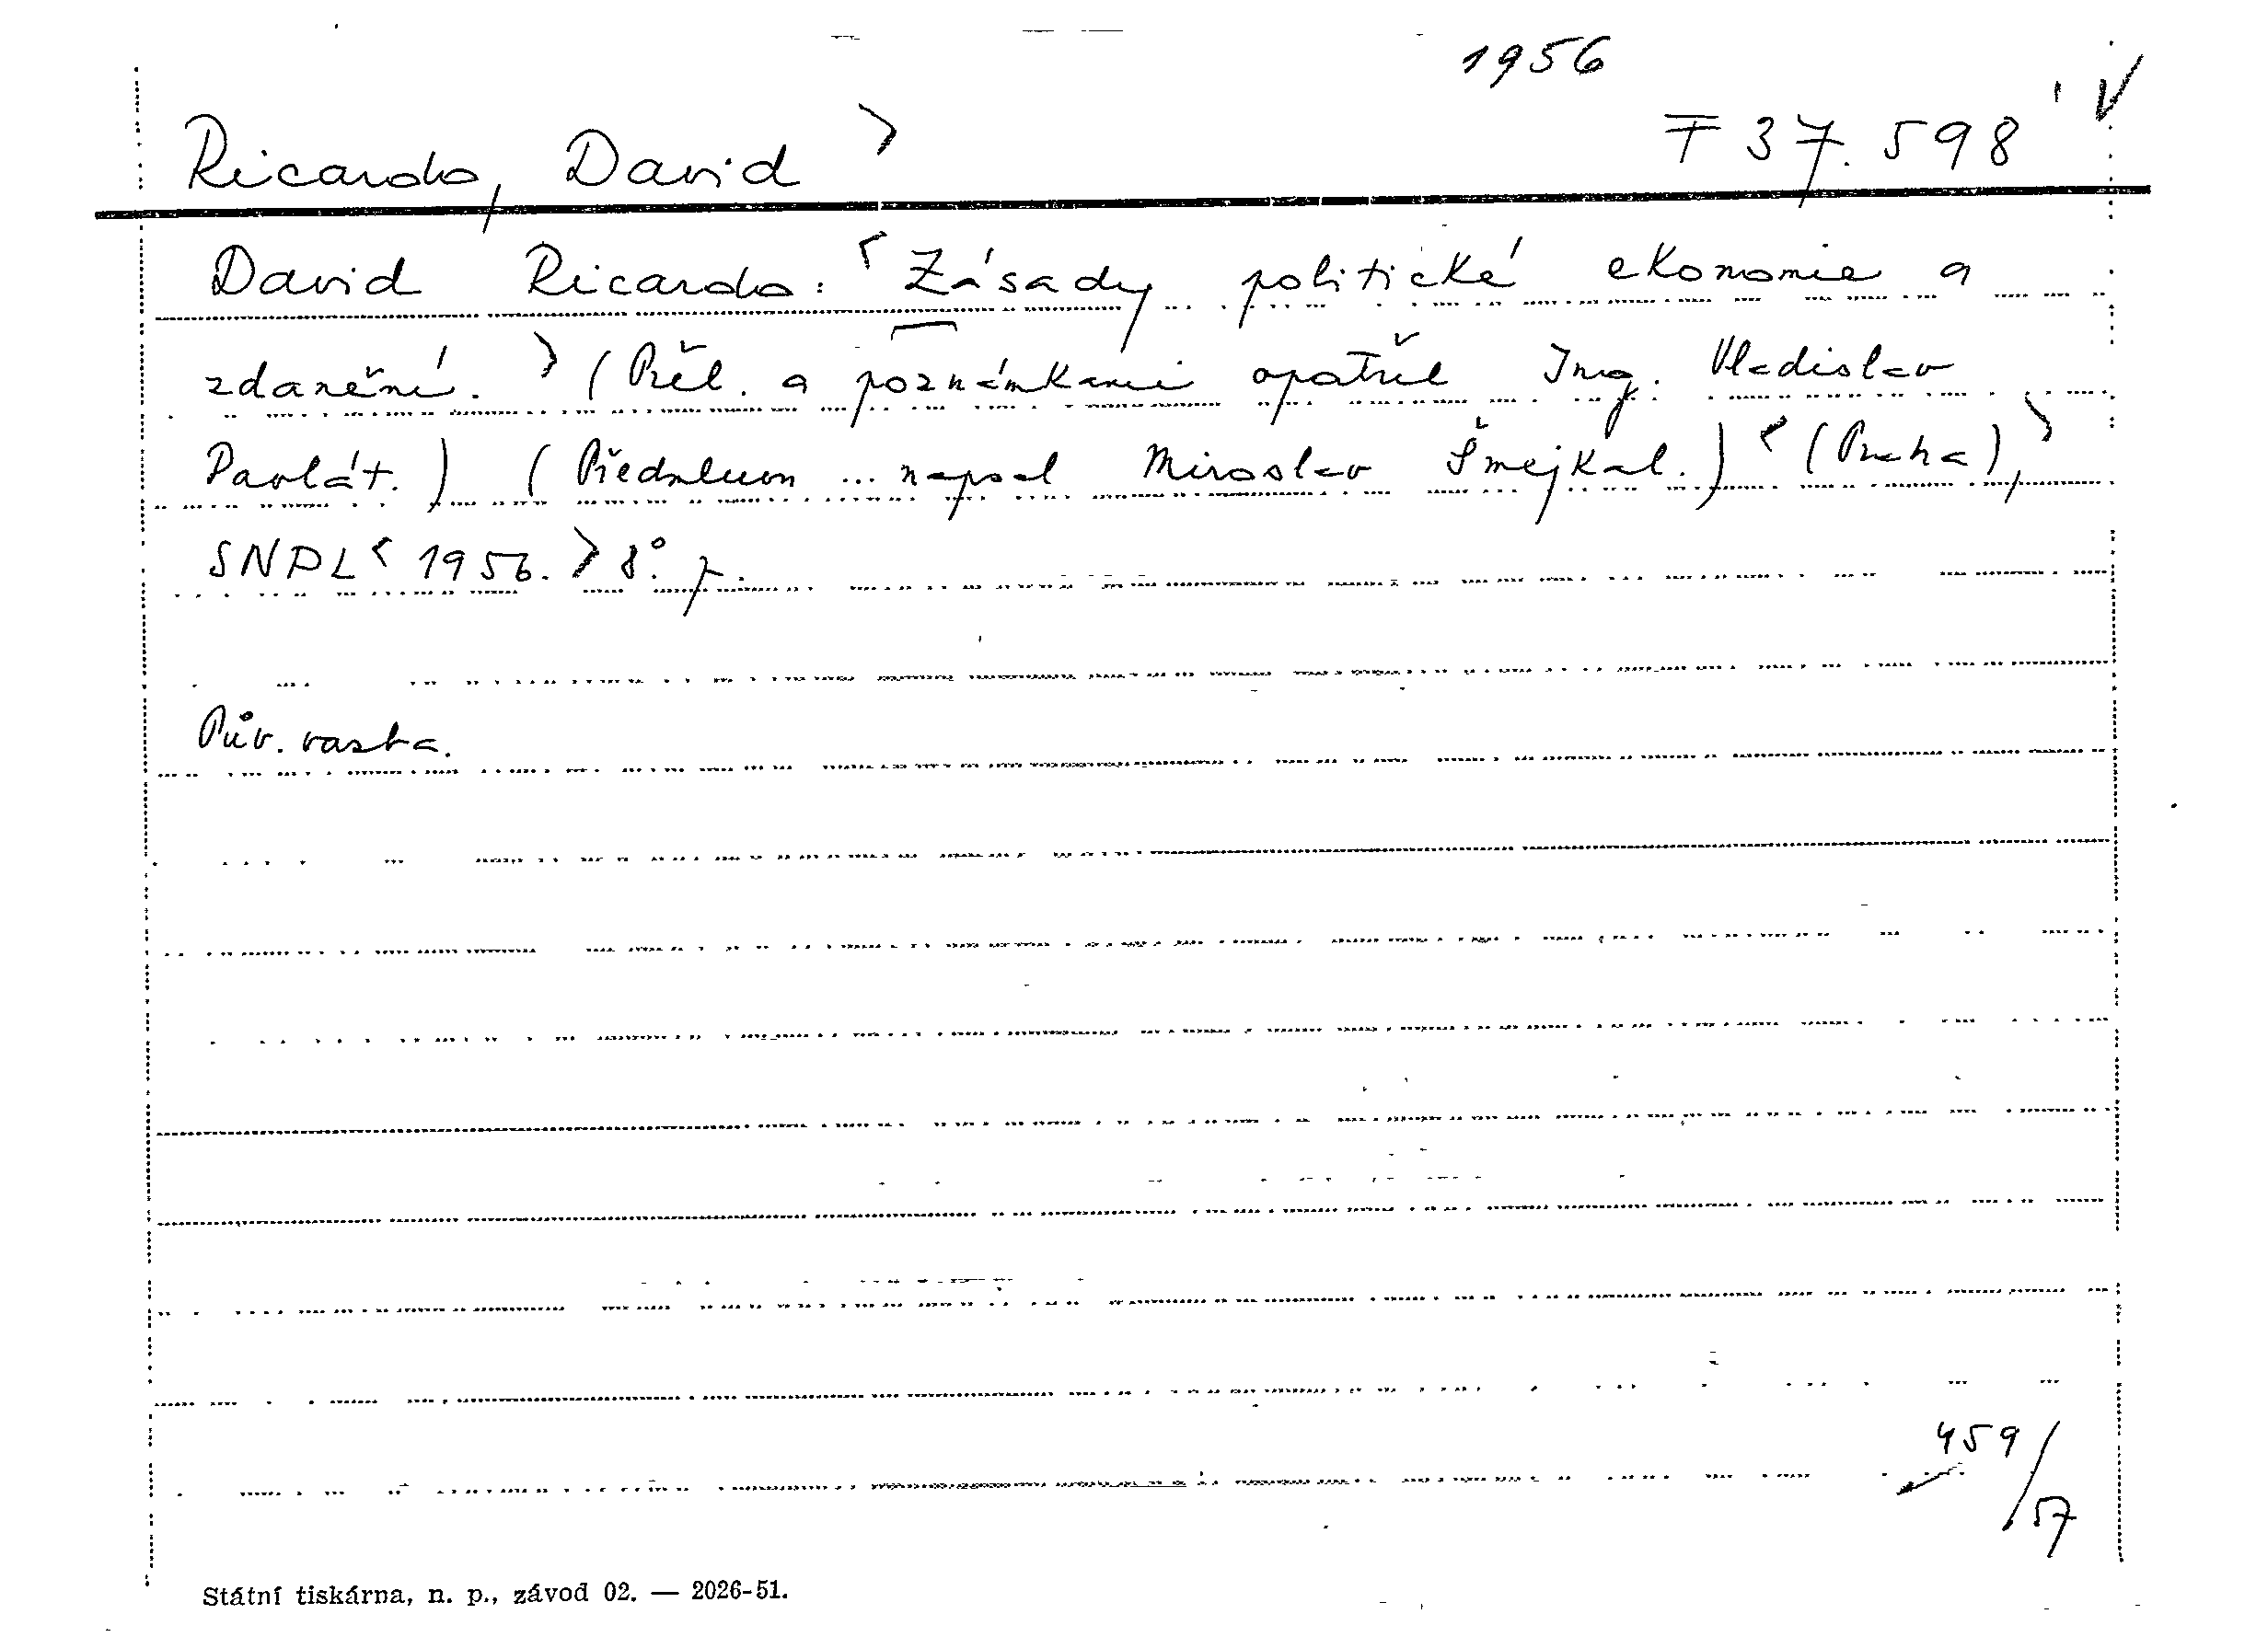 1956
Ricardo, David > F 37.598 V
David Ricardo: < Zásady politické ekonomie a
zdanění. > (Přel. a poznámkami opatřil Ing. Vladislav
Pavlát.) (Předmluvu ... napsal Miroslav Šmejkal.) < (Praha), >
SNPL < 1956. > 8°.
Pův. vazba.
459/57
Státní tiskárna, n. p., závod 02. — 2026-51.